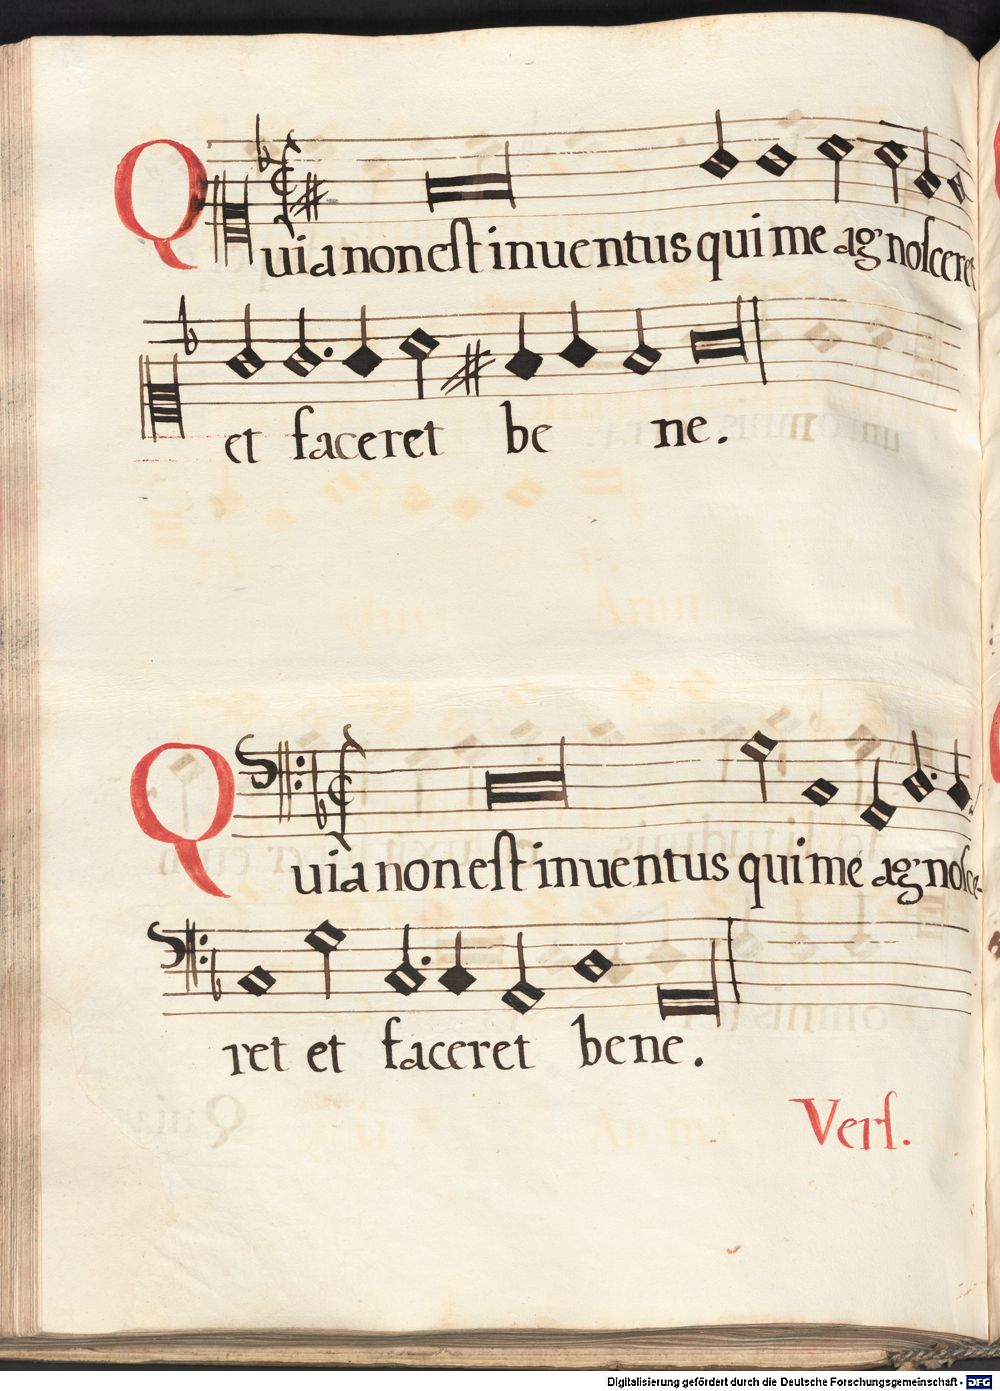 Quia non est inuentus qui me agnosceret
et faceret be ne.
Quia non est inuentus qui me agnosce-
ret et faceret bene.
Vers.
Digitalisierung gefördert durch die Deutsche Forschungsgemeinschaft - DFG